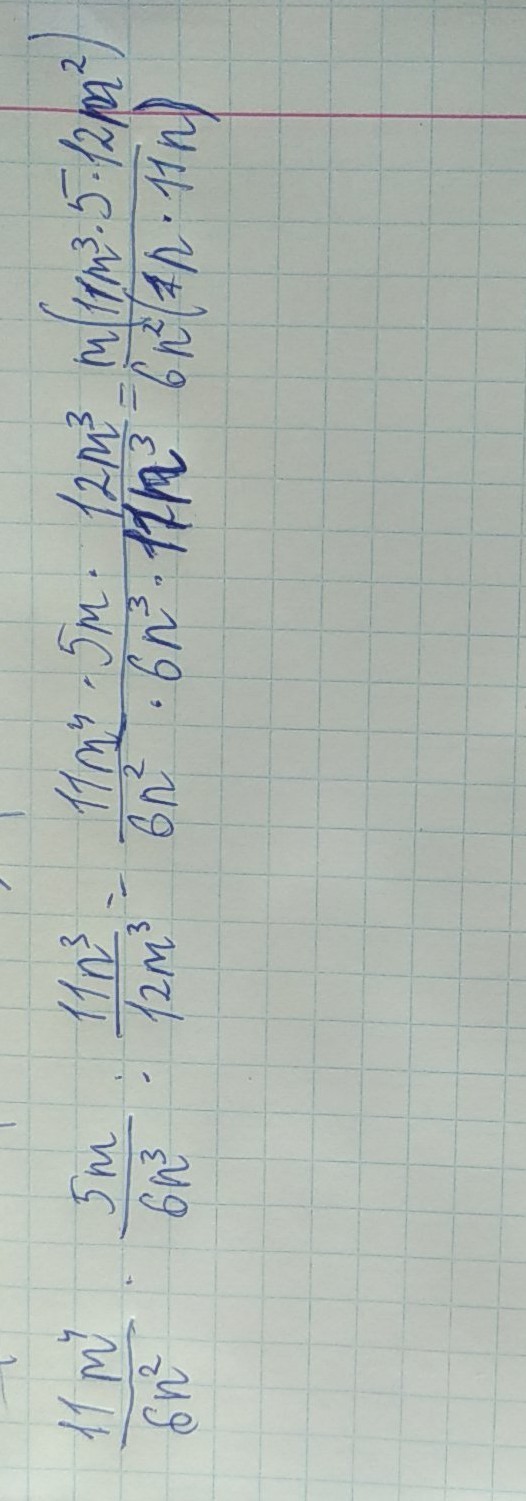 11m⁴/6n² · 5m/6n³ : 11n³/12m³ = 11m⁴ · 5m · 12m³/6n² · 6n³ · 11m³ = m(11m³ · 5 · 12m²)/6n²(1n · 11n)